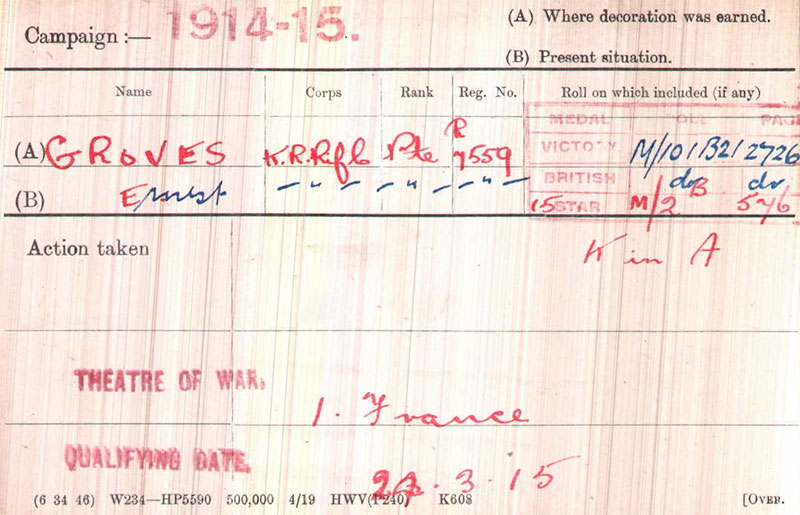 Campaign :— 1914-15.
(A) Where decoration was earned.
(B) Present situation.
Name Corps Rank Reg. No. Roll on which included (if any)
MEDAL ROLL PAGE
(A) GROVES K.R.Rif C Pte R/7559 VICTORY M/101B21 2726
(B) Ernest —"— —"— —"— BRITISH do do
15 STAR M/2 B 576
Action taken K in A
THEATRE OF WAR. 1. France
QUALIFYING DATE. 3.15
(6 34 46) W234—HP5590 500,000 4/19 HWV(P240) K608 [OVER.